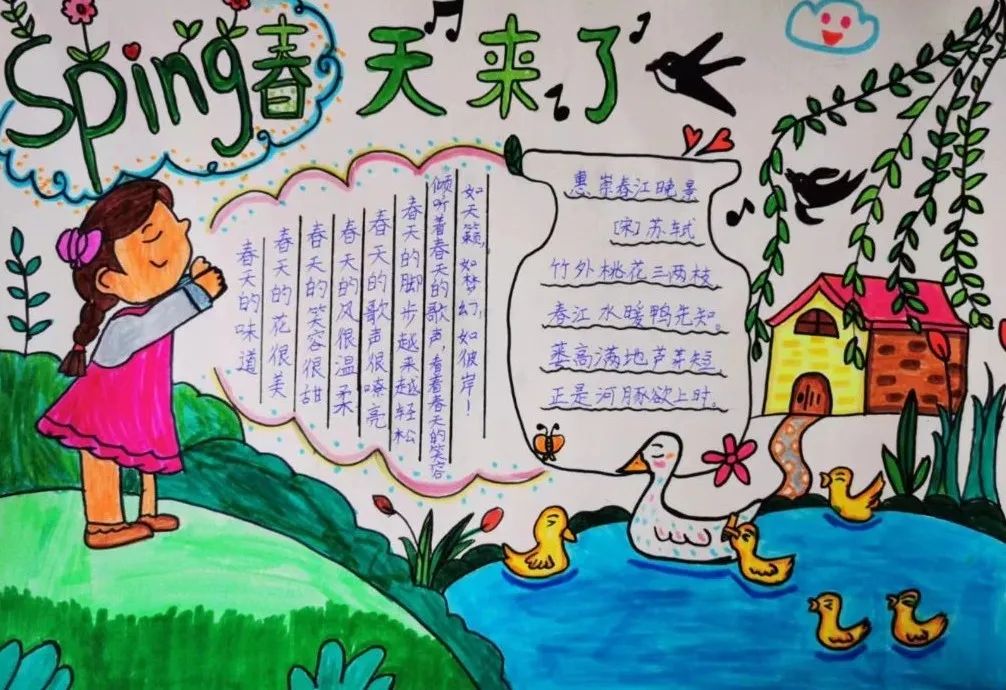 Sping春天来了
春天的味道
春天的花很美
春天的笑容很甜
春天的风很温柔
春天的歌声很嘹亮
春天的脚步越来越轻松
倾听着春天的歌声,看着春天的笑容
如天籁,如梦幻,如彼岸!
惠崇春江晚景
[宋]苏轼
竹外桃花三两枝
春江水暖鸭先知。
蒌高满地芦芽短
正是河豚欲上时。